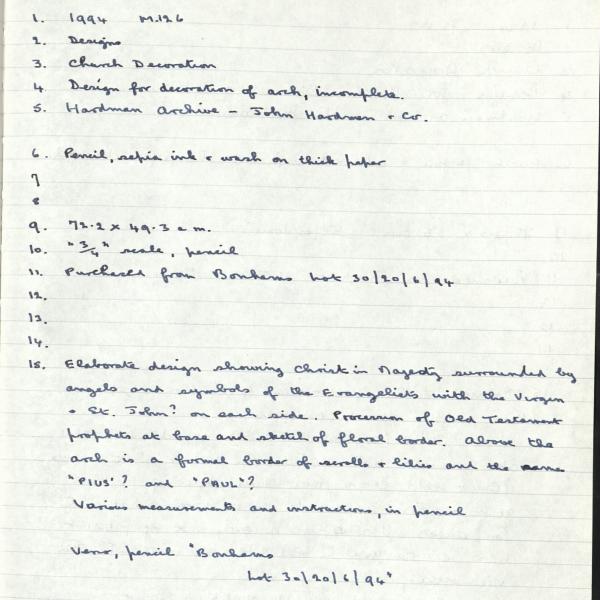 1. 1994 M.126
2. Designs
3. Church Decoration
4. Design for decoration of arch, incomplete.
5. Hardman Archive - John Hardman + Co.
6. Pencil, sepia ink + wash on thick paper
7
8
9. 72.2 x 49.3 c m.
10. "3/4" scale, pencil
11. Purchased from Bonhams Lot 30/20/6/94
12.
13.
14.
15. Elaborate design showing Christ in Majesty surrounded by
angels and symbols of the Evangelists with the Virgin
+ St. John? on each side. Procession of Old Testament
prophets at base and sketch of floral border. Above the
arch is a formal border of scrolls + lilies and the names
"PIUS'? and "PAUL"?
Various measurements and instructions, in pencil
Verso, pencil "Bonhams
Lot 30/20/6/94"